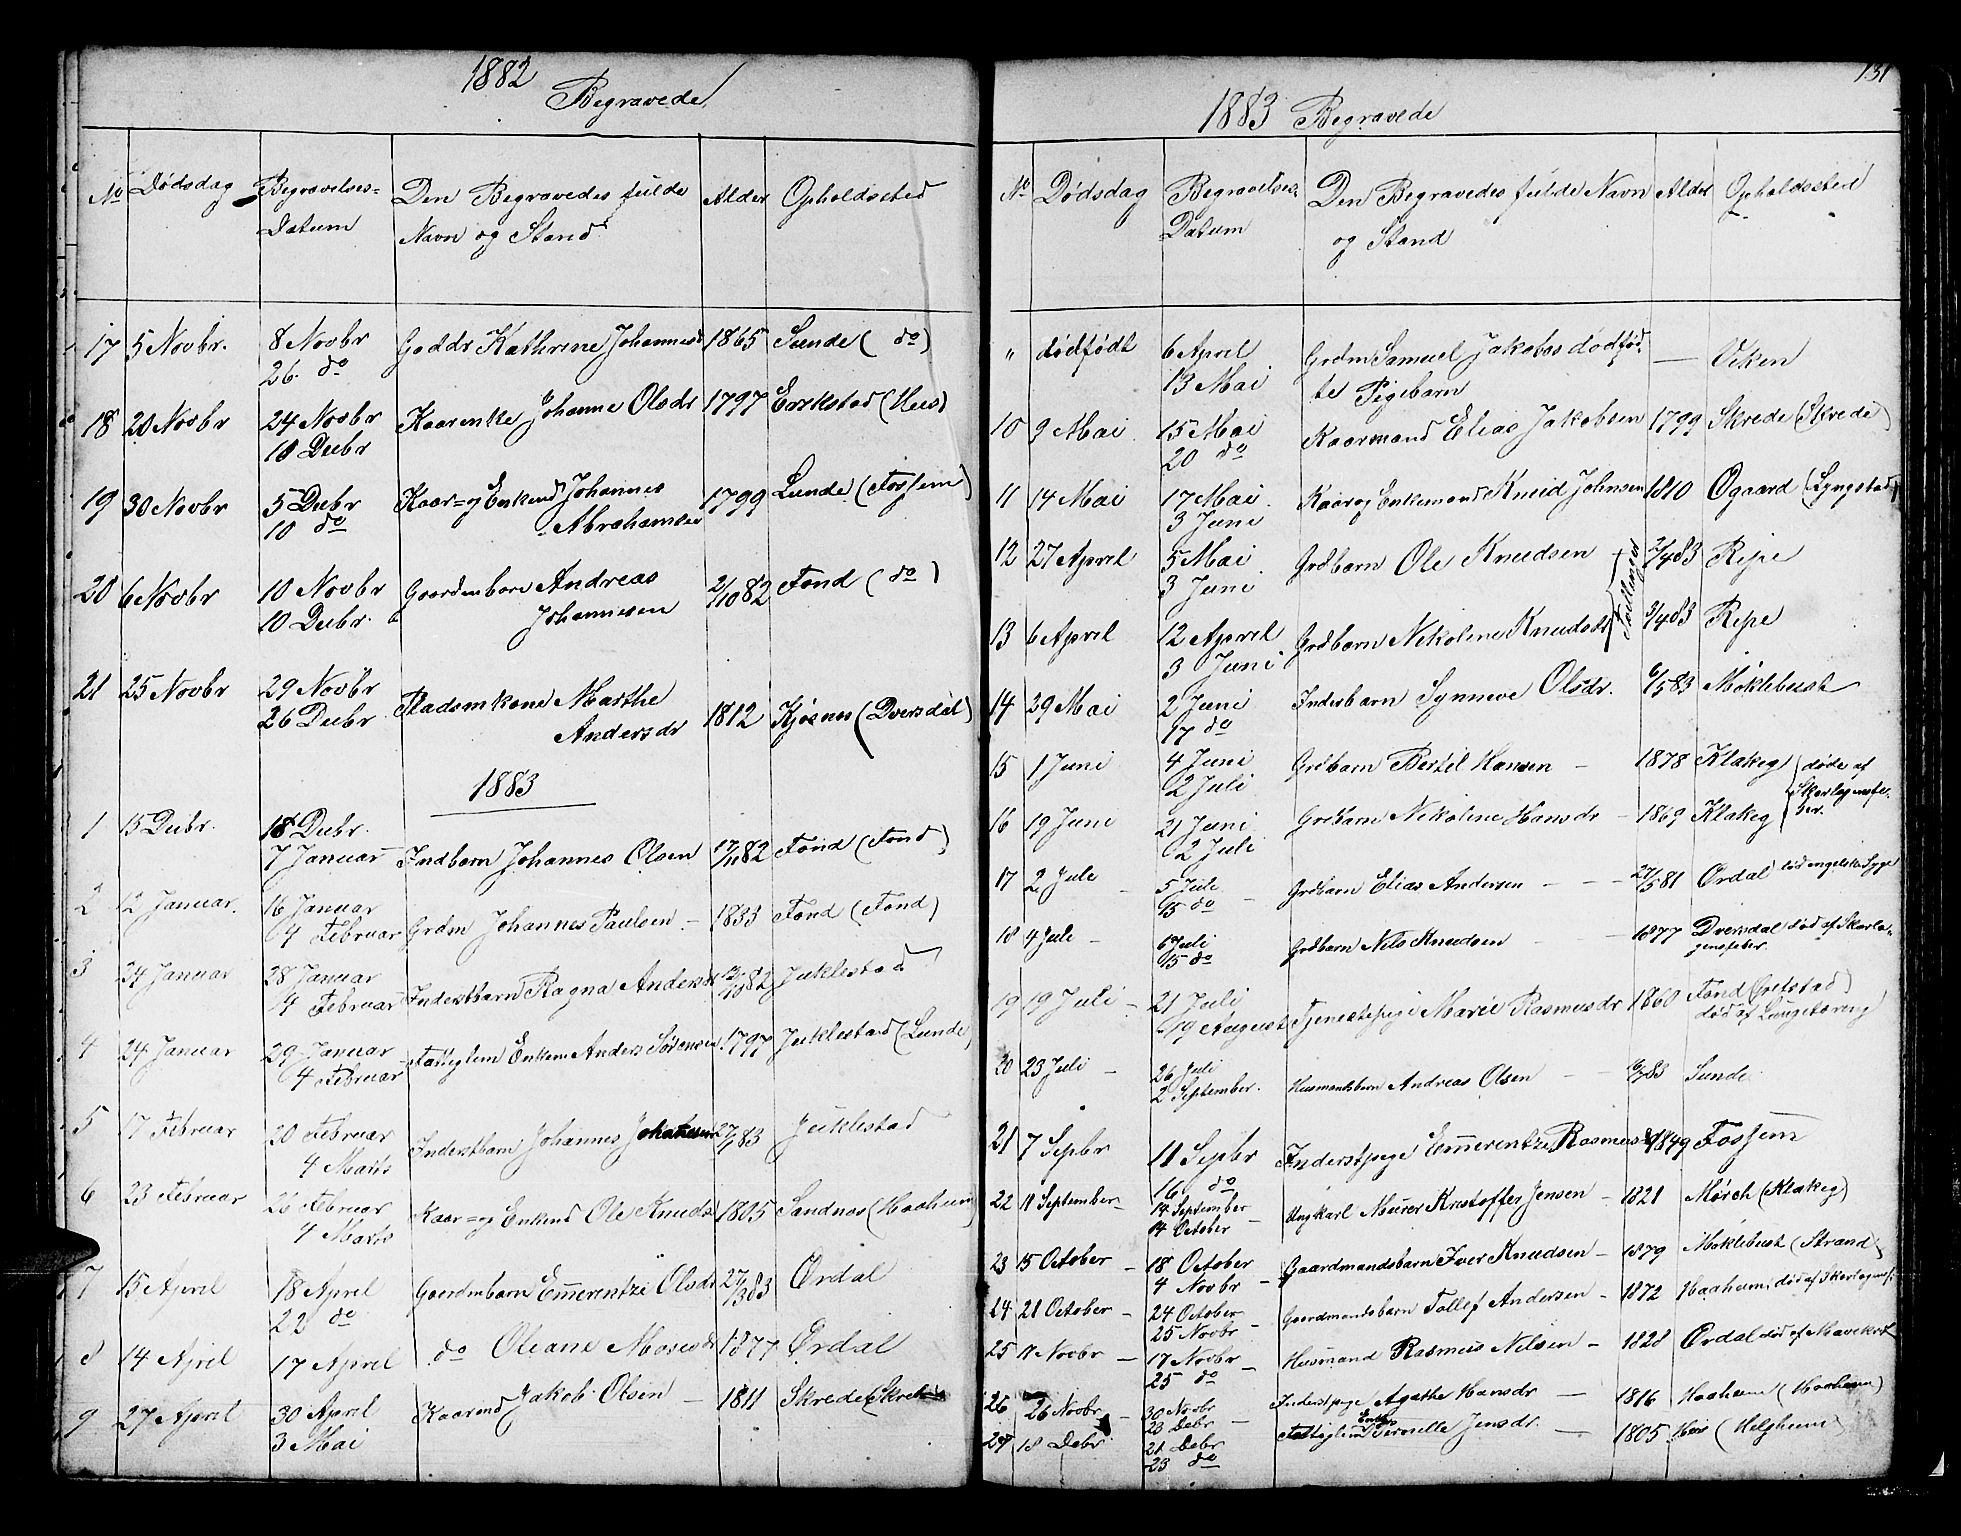 1882
Begravede
No Dødsdag Begravelses= Den Begravedes fulde Alder Opholdssted
Datum Navn og Stand
17 5 Novbr. 8 Novbr Gaddr Kathrine Johannesd 1865 Sunde ( do )
26. do
18 20 Novbr 24 Novbr Kaarenke Johanne Olsdr 1797 Erikstad (Hus)
10 Decbr
19 30 Novbr 5 Decbr Kaar= og Enkemd Johannes 1799 Lunde (Fossem)
10 do Abrahamsen
20 6 Novbr 10 Novbr Gaardmbarn Andreas 2/10 82 Fond ( do )
10 Decbr. Johannesen
21 25 Novbr 29 Novbr Pladsmkone Marthe 1812 Kjøsnes (Dversdal)
26 Decbr Andersdr
1883
1 15 Decbr. 18 Decbr.
7 Januar Indbarn Johannes Olsen 17/11 82 Fond (Fond)
2 12 Januar. 16 Januar
4 Februar Grdm Johannes Paulsen - 1833 Fond (Fond)
3 24 Januar 28 Januar
4 Februar Inderstbarn Ragna Andersdr 12/10 82 Juklestad
4 24 Januar 29 Januar
4 Februar Fattiglem Enkem Anders Sørensen 1797 Juklestad (Lunde)
5 17 Februar 20 Februar
4 Marts Inderstbarn Johannes Johannesen 27/1 83 Juklestad
6 23 Februar 26 Februar
4 Marts Kaar= og Enkemd Ole Knuds 1805 Sandnes (Haaheim)
7 15 April 18 April Gaardmbarn Emerentze Olsdr 27/3 83 Ørdal
22 do
8 14 April 17 April do Oleane Mosesdr 1877 Ørdal
9 27 April 30 April Kaarmd Jakob Olsen - 1811 Skrede (Skrede
3 Mai
131
1883 Begravede
No Dødsdag Begravelses= Den Begravedes fulde Navn Alder Opholdssted
Datum og Stand
" dødfødt 6 April Grdm Samuel Jakobs dødfød= — Viken
13 Mai te Pigebarn
10 9 Mai 15 Mai Kaarmand Elias Jakobsen 1799 Skrede (Skrede)
20 do
11 14 Mai 17 Mai. Kaar og Enkemand Knud Johnsen 1810 Øgaard (Lyngstad)
3 Juni
12 27 April 5 Mai Grdbarn Ole Knudsen 2/4 83 Ripe
3 Juni
Tvillinger
13 6 April 12 April Grdbarn Nikoline Knudsdr 3/4 83 Ripe
3 Juni
14 29 Mai 2 Juni Inderbarn Synneve Olsdr. 6/5 83 Møklebust
17 do
15 1 Juni 4 Juni Grdbarn Bertil Hansen - 1878 Klakeg døde af
2 Juli Skarlagensfe=
16 19 Juni 21 Juni Grdbarn Nikoline Hansdr - 1869 Klakeg ber.
2 Juli
17 2 Juli 5 Juli Grdbarn Elias Andersen - - 27/5 81 Ørdal død engelsk Syge
15 do
18 4 Juli 6 Juli Grdbarn Nils Knudsen - - 1877 Dversdal død af Skarla=
15 do gensfeber.
19 19 Juli 21 Juli Tjenestepige Marie Rasmusdr 1860 Fond (Grefstad)
19 August død af Lungetæring
20 23 Juli 26 Juli Husmandsbarn Andreas Olsen - 6/7 83 Sunde
2 September.
21 7 Sepbr 11 Sepbr Inderstpige Emerentze Rasmusd 1849 Fossem
16 do
22 11 September 14 September Ungkarl Murer Kristoffer Jensen - 1821 Mørch (Klakeg)
14 October
23 15 October 18 October Gaardmandsbarn Iver Knudsen - 1879 Møklebust (Strand)
4 Novbr
24 21 October 24 October Gaardmandsbarn Tollef Andersen - 1872 Haaheim, død af Skarlagensf
25 Novbr
25 11 Novbr 17 Novbr Husmand Rasmus Nilsen - 1828 Ørdal død af Mavekræft
25 do
26 26 Novbr 30 Novbr Inderstpige Agathe Hansdr — 1816 Haaheim (Haaheim)
23 Debr
27 18 Debr 21 Debr Fattiglem Enke Pernelle Jensdr. — 1805 Hus (Helgheim)
23 do